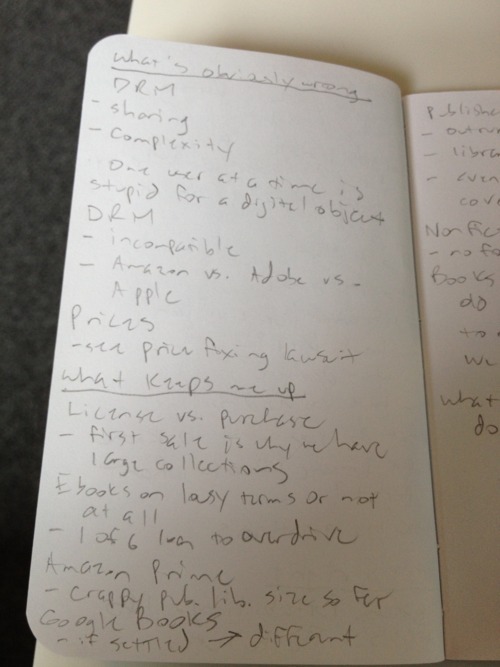 what's obviously wrong
DRM
- sharing
- Complexity
One user at a time is
stupid for a digital object
DRM
- incompatible
- Amazon vs. Adobe vs.
Apple
Prices
- see price fixing lawsuit
what keeps me up
License vs. purchase
- first sale is why we have
large collections
Ebooks on lousy terms or not
at all
- 1 of 6 to overdrive
Amazon Prime
- crappy pub. lib. size so far
Google Books
- if settled → different
Publishe
-
- libra
- even
cove
Nonfic
- no fo
Books
do
to
we
what
do